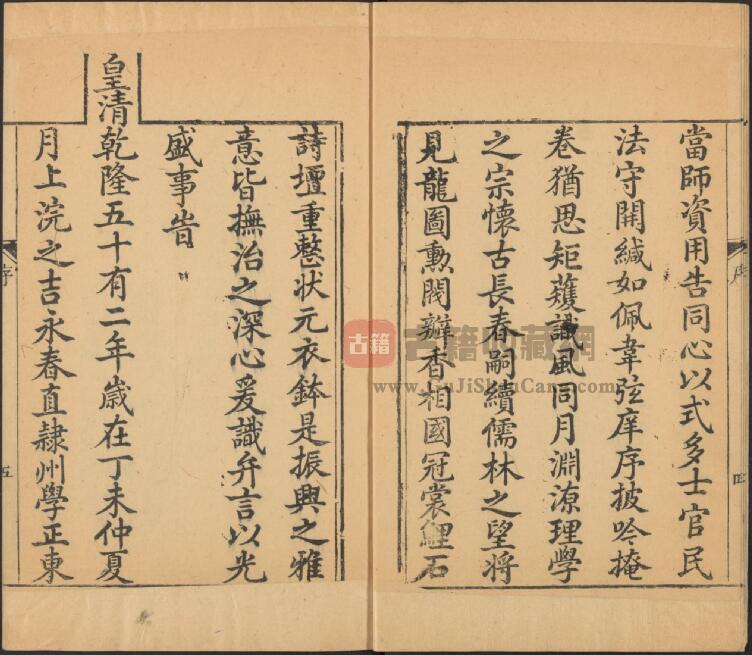 當師資用告同心以式多士官民
法守開緘如佩韋弦庠序披吟掩
卷猶思矩矱識風同月淵源理學
之宗懷古長春嗣續儒林之望將
見龍圖勲閥辦香相國冠裳鯉石
序
四
詩壇重整状元衣鉢是振興之雅
意皆撫治之深心爰識弁言以光
盛事旹
皇清乾隆五十有二年歲在丁未仲夏
月上浣之吉永春直隷州學正東
序
五
古籍
www.GuJiShouCang.com